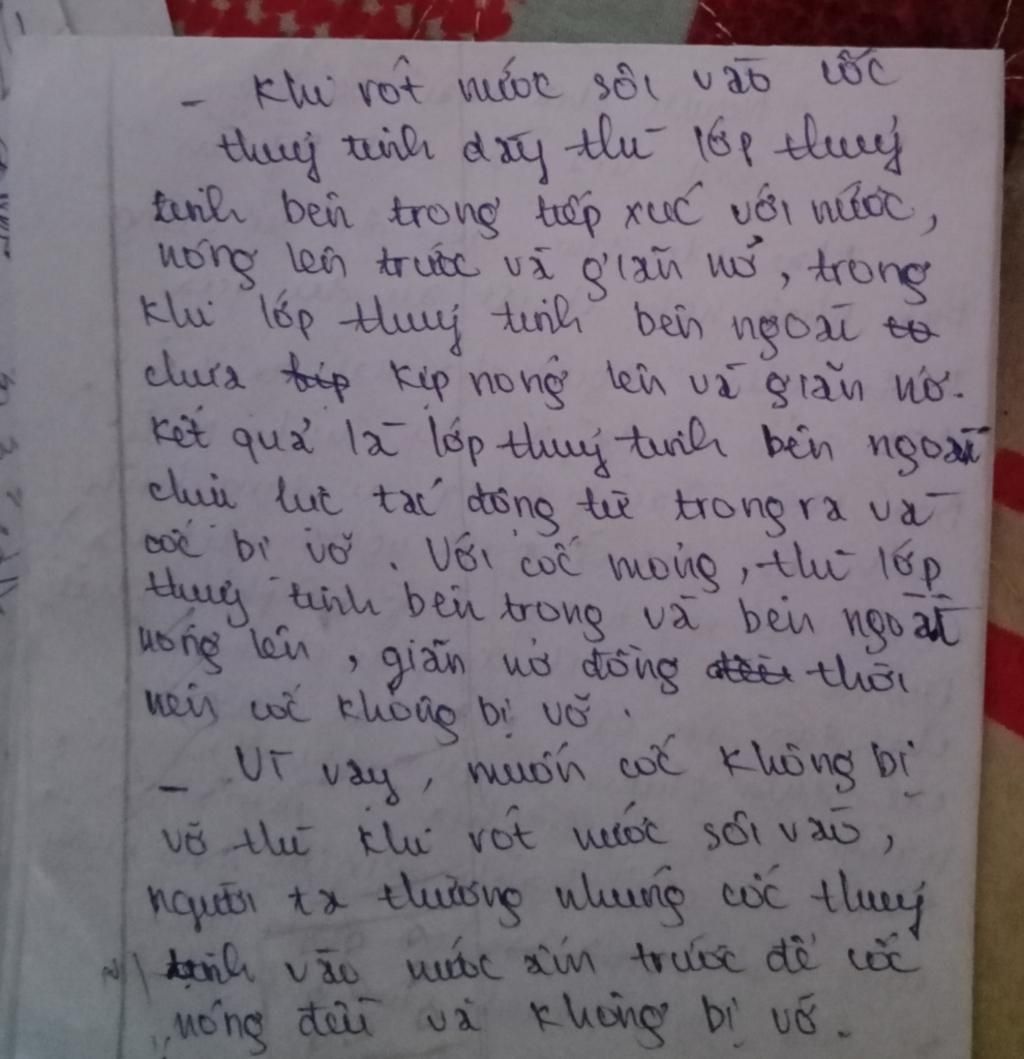 - Khi rót nước sôi vào cốc
thuỷ tinh dày thì lớp thuỷ
tinh bên trong tiếp xúc với nước,
nóng lên trước và giãn nở, trong
khi lớp thuỷ tinh bên ngoài
chưa kịp nóng lên và giãn nở.
Kết quả là lớp thuỷ tinh bên ngoài
chịu lực tác động từ trong ra và
cốc bị vỡ. Với cốc mỏng, thì lớp
thuỷ tinh bên trong và bên ngoài
nóng lên, giãn nở đồng thời
nên cốc không bị vỡ.
- Vì vậy, muốn cốc không bị
vỡ thì khi rót nước sôi vào,
người ta thường nhúng cốc thuỷ
tinh vào nước trước để cốc
nóng đều và không bị vỡ.